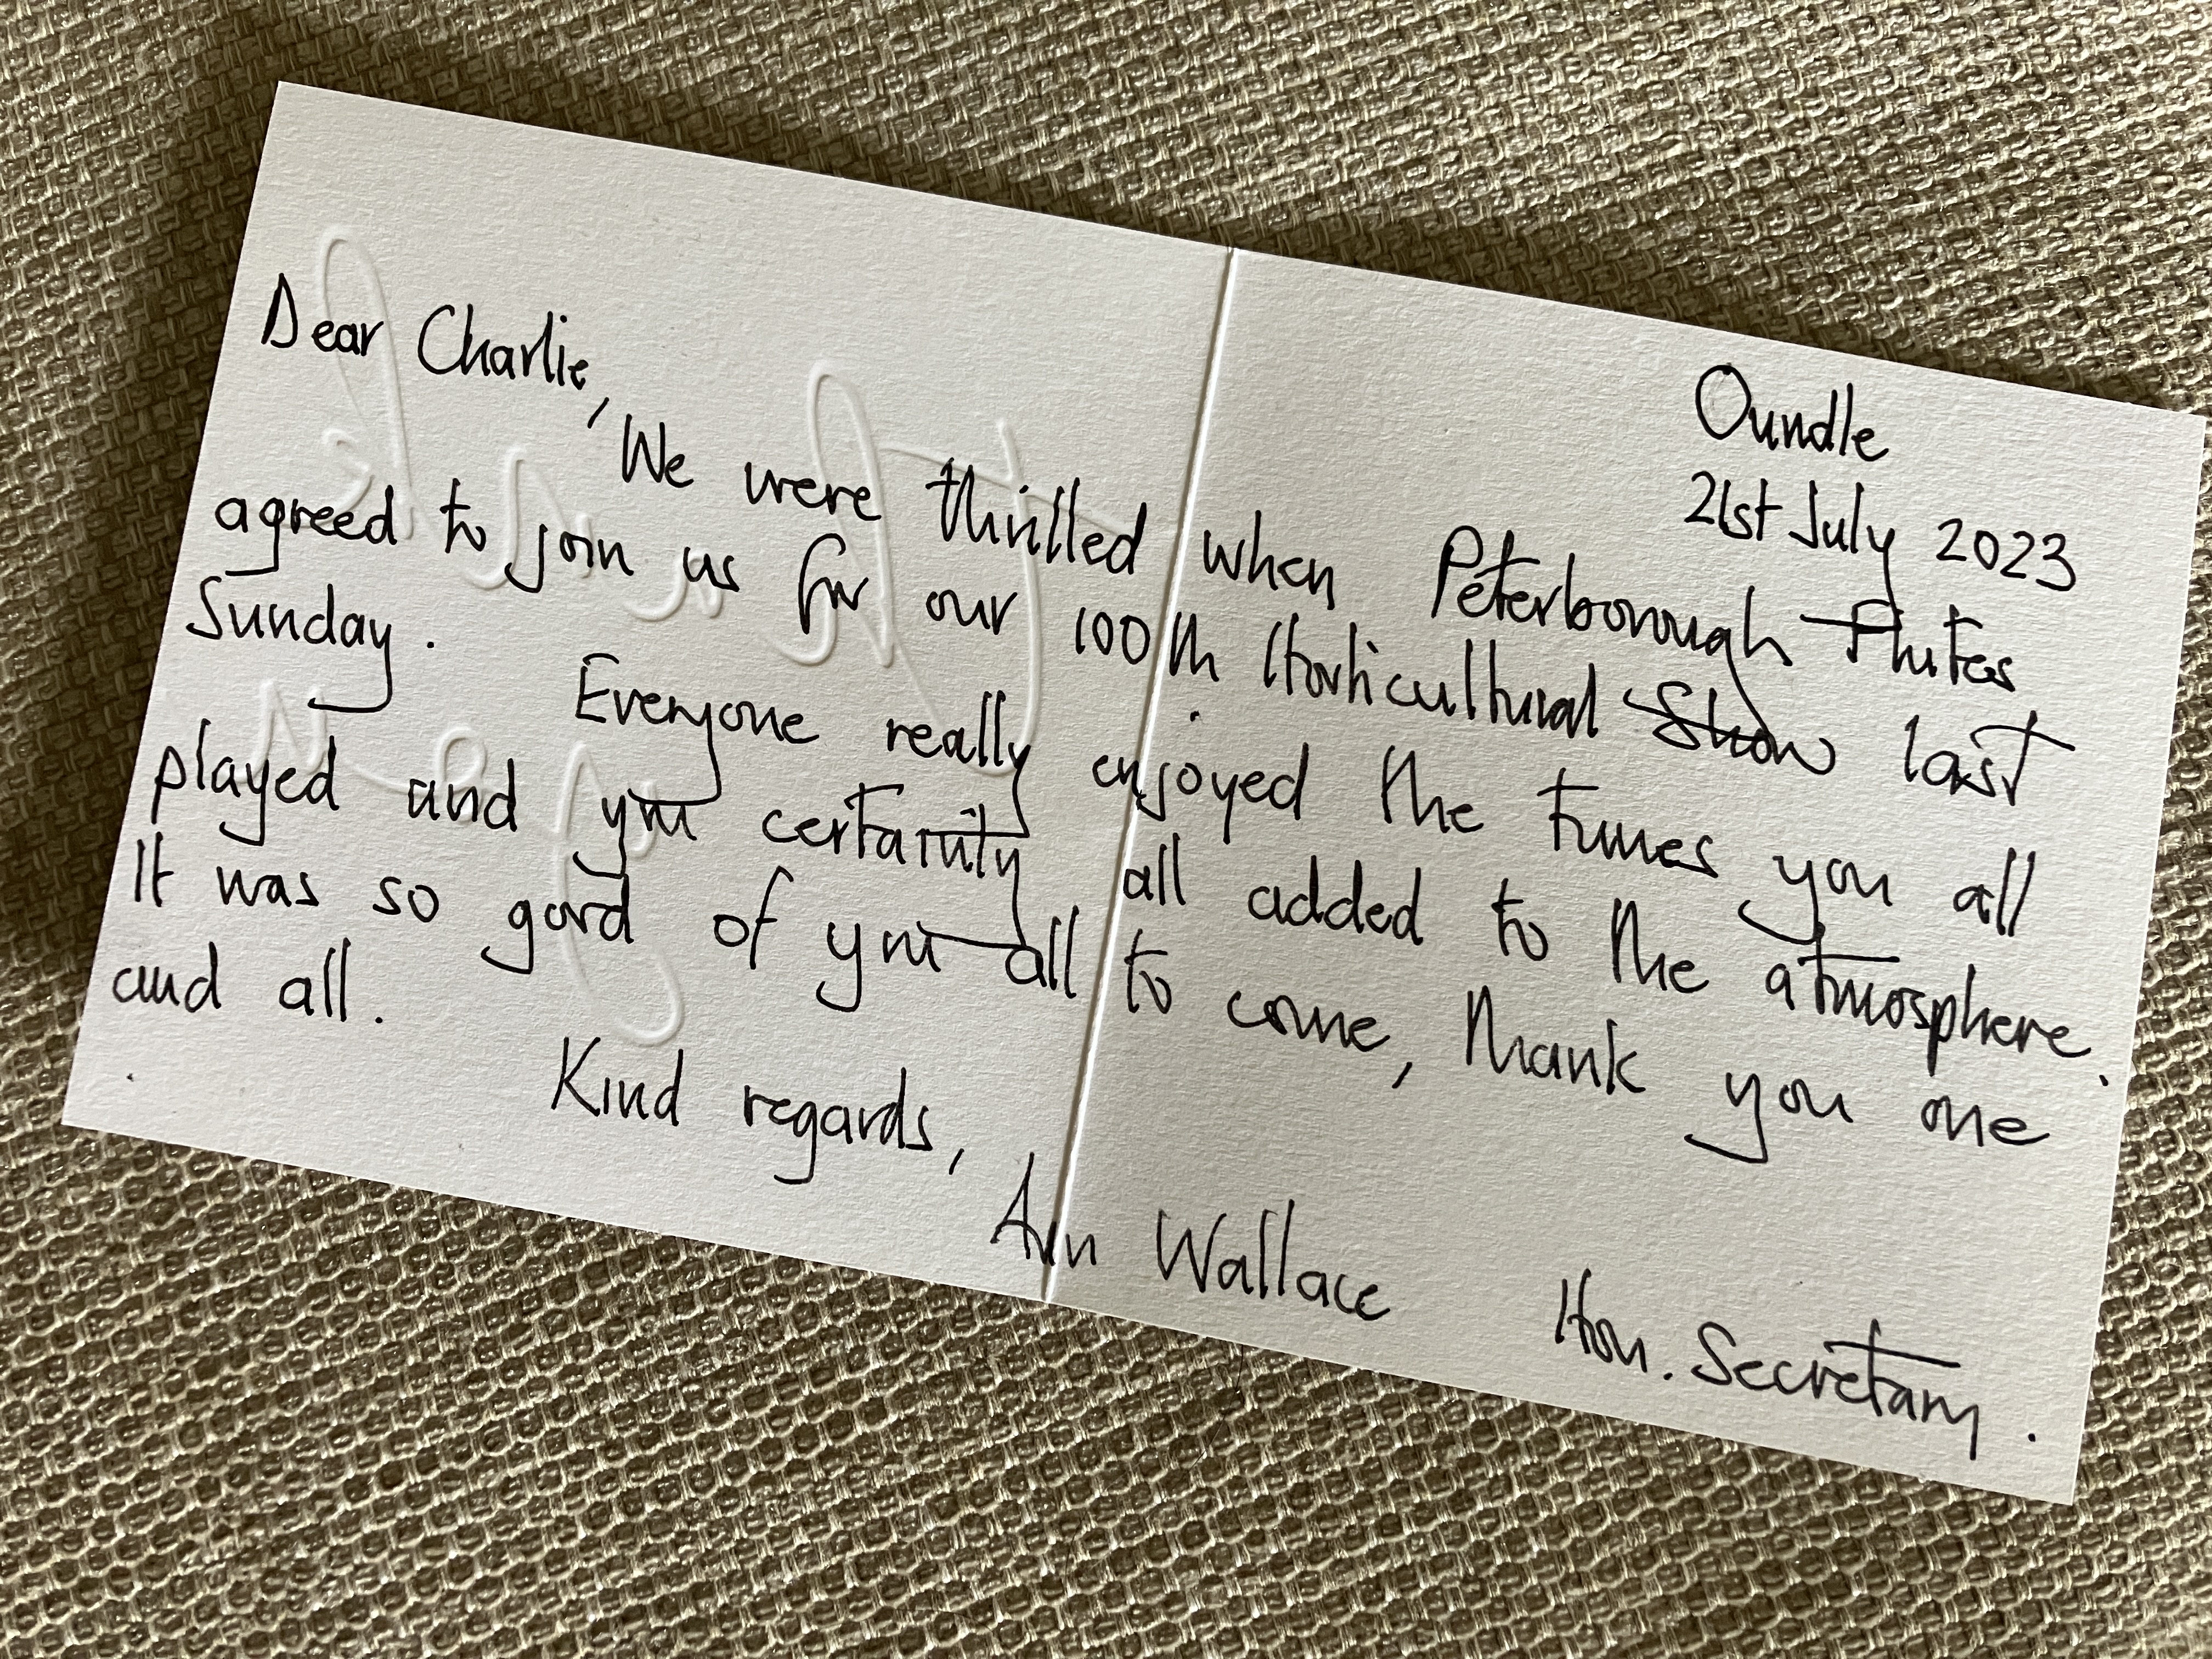 Oundle
21st July 2023
Dear Charlie,
We were thrilled when Peterborough Flutes
agreed to join us for our 100th Horticultural Show last
Sunday.
Everyone really enjoyed the tunes you all
played and you certainly all added to the atmosphere.
It was so good of you all to come, thank you one
and all.
Kind regards,
Ann Wallace Hon. Secretary.